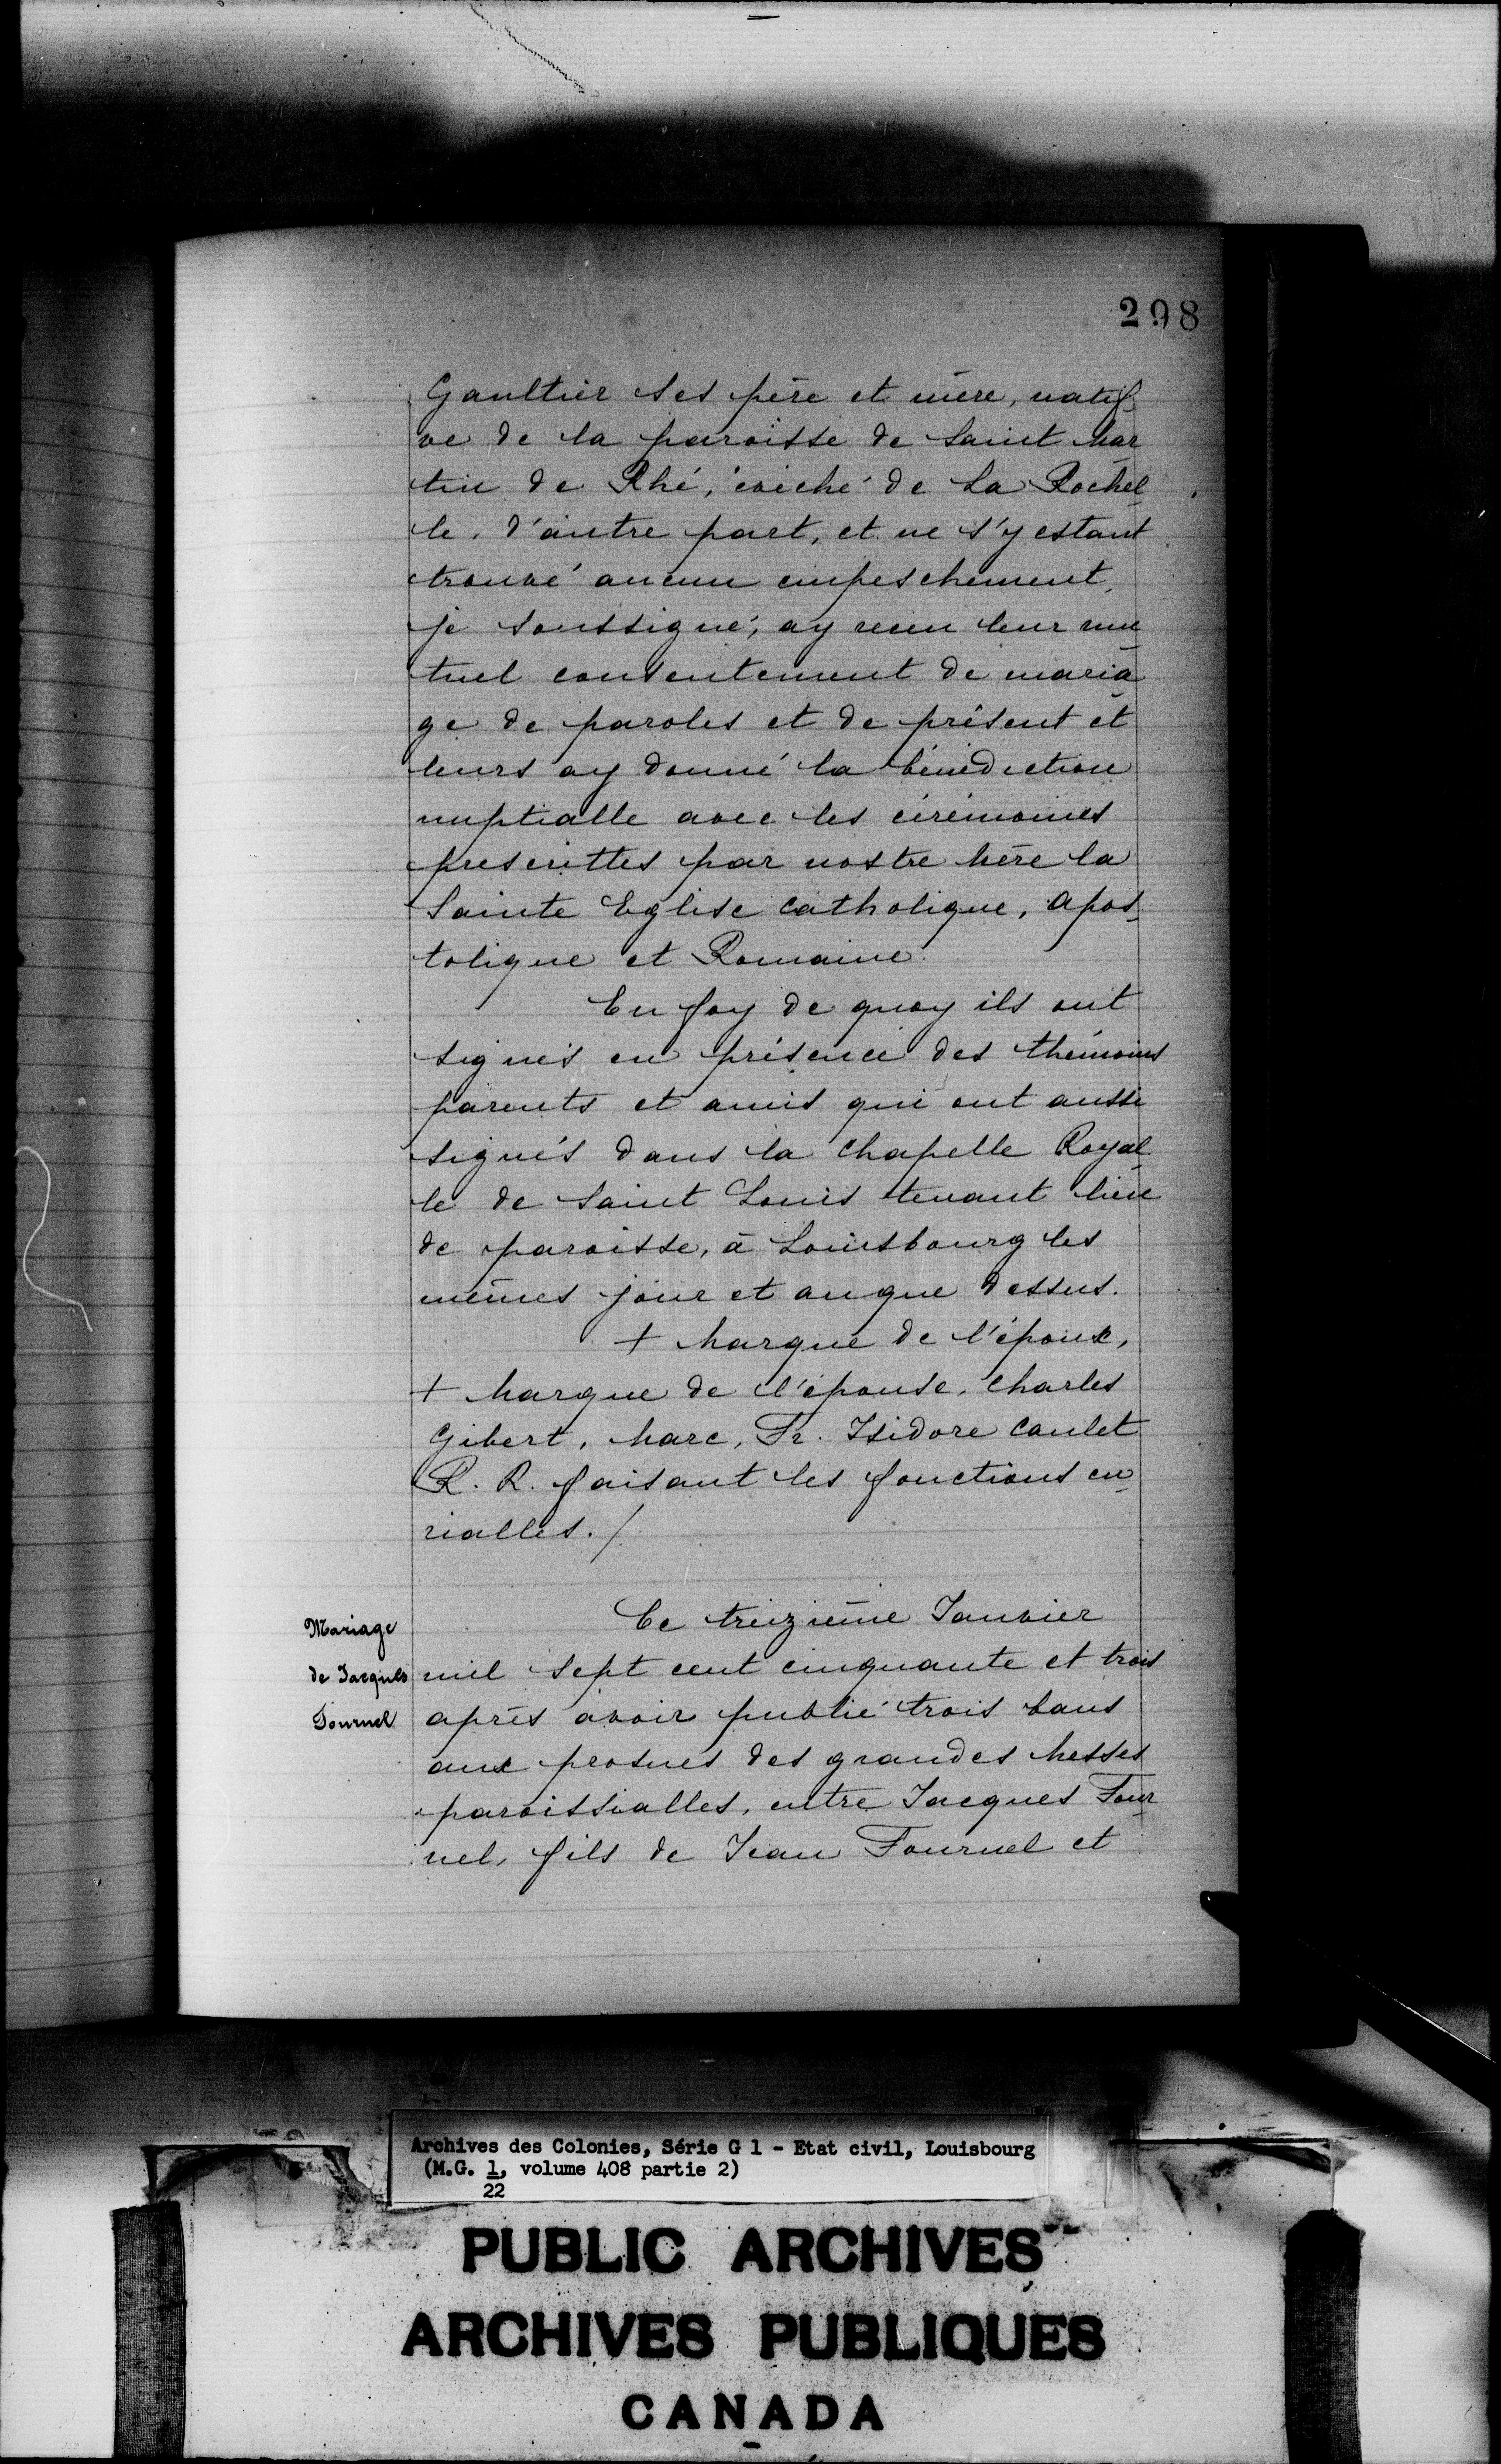 298
Gaultier ses père et mère, natif-
ve de la paroisse de Saint Mar
tin de Rhé, évêché de La Rochel
le, d'autre part, et ne s'y estant
trouvé aucun empeschement,
je soussigné, ay receu leur mu
tuel consentement de maria
ge de paroles et de présent et
leurs ay donné la bénédiction
nuptialle avec les cérémonies
prescrittes par nostre Mère la
Sainte Eglise Catholique, Apos-
tolique et Romaine.
En foy de quoy ils ont
signés en présence des thémoins
parents et amis qui ont aussi
signés dans la Chapelle Royal
le de Saint Louis tenant lieu
de paroisse, à Louisbourg les
mêmes jour et an que dessus.
+ Marque de l'époux,
+ Marque de l'épouse, Charles
Gibert, Marc, Fr. Isidore Caulet
R. R. faisant les fonctions cu-
rialles./
Mariage
de Jacques
Fournel
Ce treizième Janvier
mil sept cent cinquante et trois
après avoir publié trois bans
aux prosnes des grandes Messes
paroissialles, entre Jacques Four
nel, fils de Jean Fournel et
Archives des Colonies, Série G 1 - Etat civil, Louisbourg
(M.G. 1, volume 408 partie 2)
22
PUBLIC ARCHIVES
ARCHIVES PUBLIQUES
CANADA